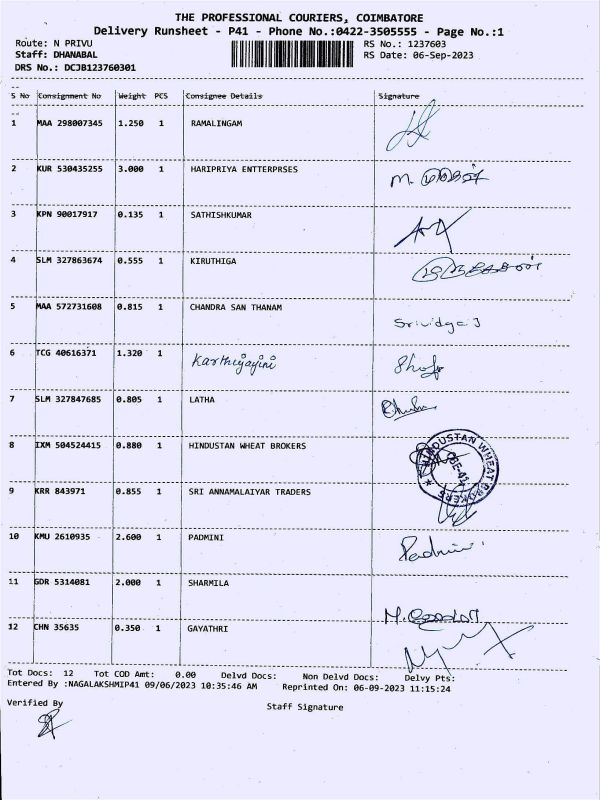 THE PROFESSIONAL COURIERS, COIMBATORE
Delivery Runsheet - P41 - Phone No.:0422-3505555 - Page No.:1
Route: N PRIVU RS No.: 1237603
Staff: DHANABAL RS Date: 06-Sep-2023
DRS No.: DCJB123760301
S No Consignment No Weight PCS Consignee Details Signature
1 MAA 298007345 1.250 1 RAMALINGAM
2 KUR 530435255 3.000 1 HARIPRIYA ENTTERPRSES
3 KPN 90017917 0.135 1 SATHISHKUMAR
4 SLM 327863674 0.555 1 KIRUTHIGA
5 MAA 572731608 0.815 1 CHANDRA SAN THANAM
6 TCG 40616371 1.320 1 Karthiyayini
7 SLM 327847685 0.805 1 LATHA
8 IXM 504524415 0.880 1 HINDUSTAN WHEAT BROKERS
HINDUSTAN WHEAT BROKERS
CBE-41
9 KRR 843971 0.855 1 SRI ANNAMALAIYAR TRADERS
10 KMU 2610935 2.600 1 PADMINI Padmini
11 GDR 5314081 2.000 1 SHARMILA
12 CHN 35635 0.350 1 GAYATHRI
Tot Docs: 12 Tot COD Amt: 0.00 Delvd Docs: Non Delvd Docs: Delvy Pts:
Entered By :NAGALAKSHMIP41 09/06/2023 10:35:46 AM Reprinted On: 06-09-2023 11:15:24
Verified By Staff Signature